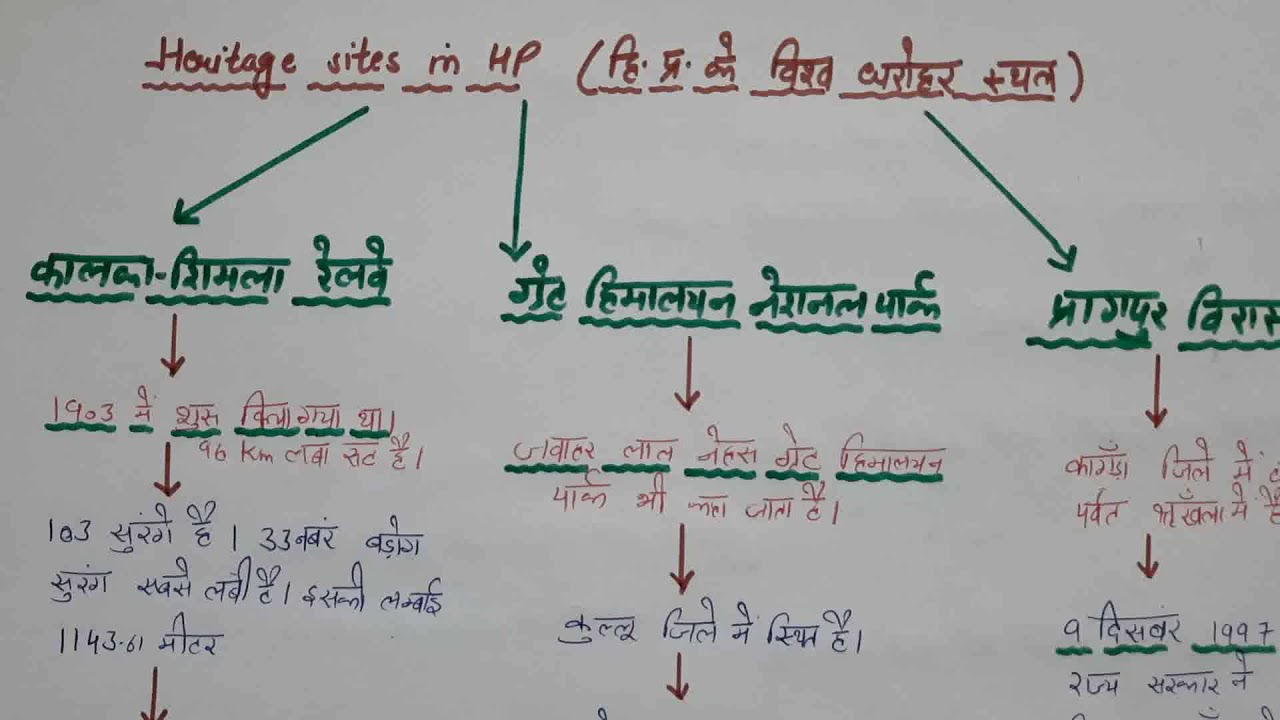 Heritage sites in HP (हि. प्र. के विश्व धरोहर स्थल)
कालका-शिमला रेलवे
1903 में शुरू किया गया था।
96 Km लंबा रूट है।
103 सुरंगे है। 33 नबंर बड़ोग
सुरंग सबसे लंबी है। इसकी लम्बाई
1143.61 मीटर
ग्रेट हिमालयन नेशनल पार्क
जवाहर लाल नेहरू ग्रेट हिमालयन
पार्क भी कहा जाता है।
कुल्लू जिले में स्थित है।
प्रागपुर विरास
कागँड़ा जिले में
पर्वत श्रृँखला में है
9 दिसबंर 1997
राज्य सरकार ने